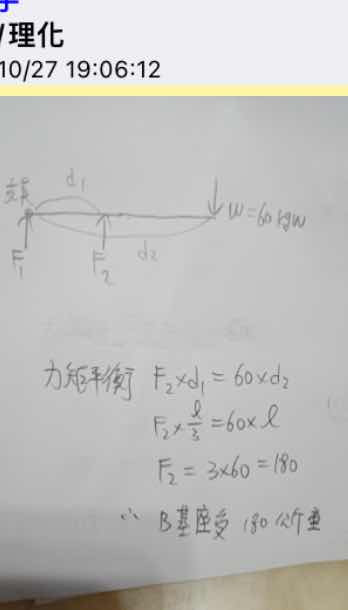 /理化
10/27 19:06:12
支点
d₁
W=60 kgw
F₁
F₂
d₂
力矩平衡 F₂×d₁=60×d₂
F₂×ℓ/3=60×ℓ
F₂=3×60=180
∴ B基座受 180 公斤重